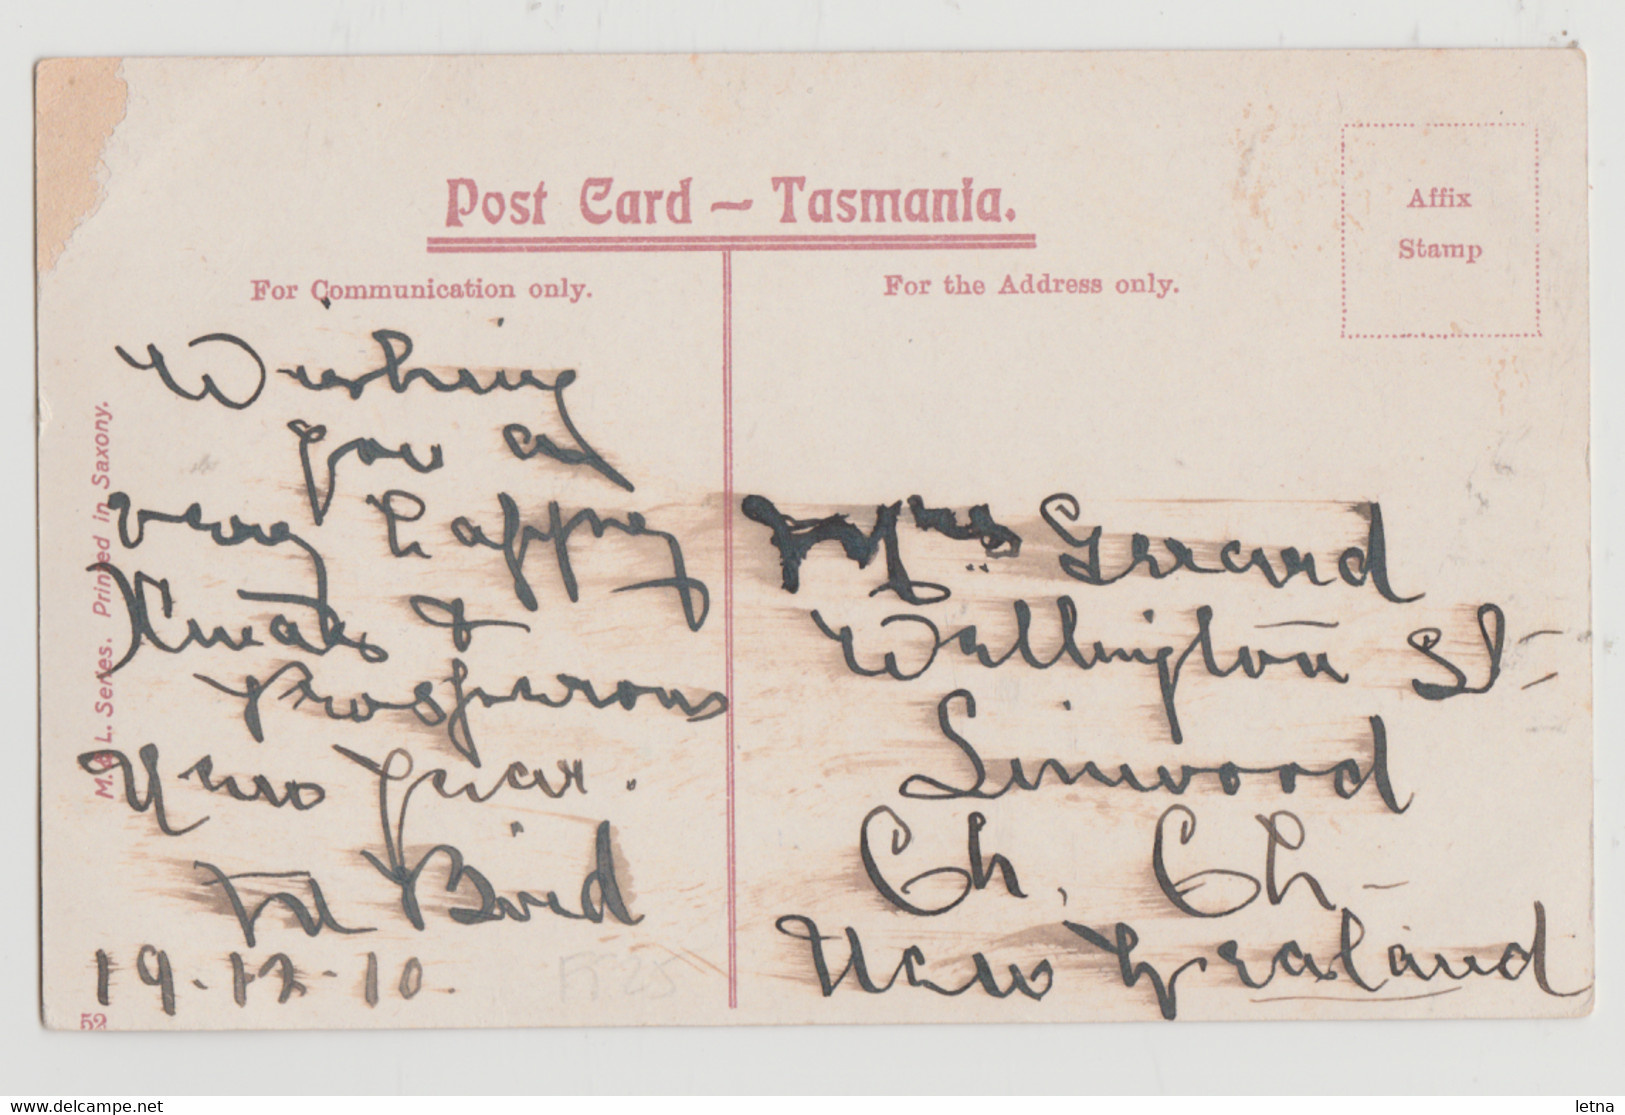 Post Card – Tasmania.
For Communication only.
For the Address only.
Affix
Stamp
Wishing
you a
very happy
Xmas &
Prosperous
New Year.
M Bird
19.12.10.
Mrs Gerrard
Wellington St
Linwood
Ch. Ch
New Zealand
M. & L. Series. Printed in Saxony.
52
www.delcampe.net
letna